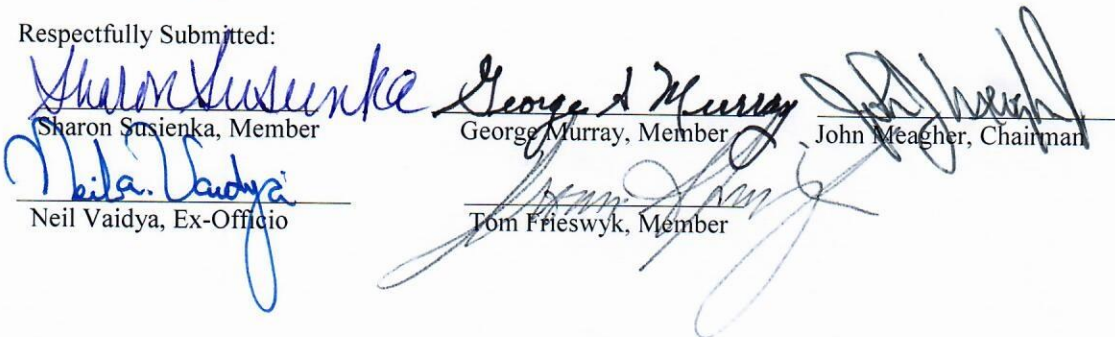 Respectfully Submitted:
Sharon Susienka George A Murray
Sharon Susienka, Member George Murray, Member John Meagher, Chairman
Neil A. Vaidya
Neil Vaidya, Ex-Officio Tom Frieswyk, Member